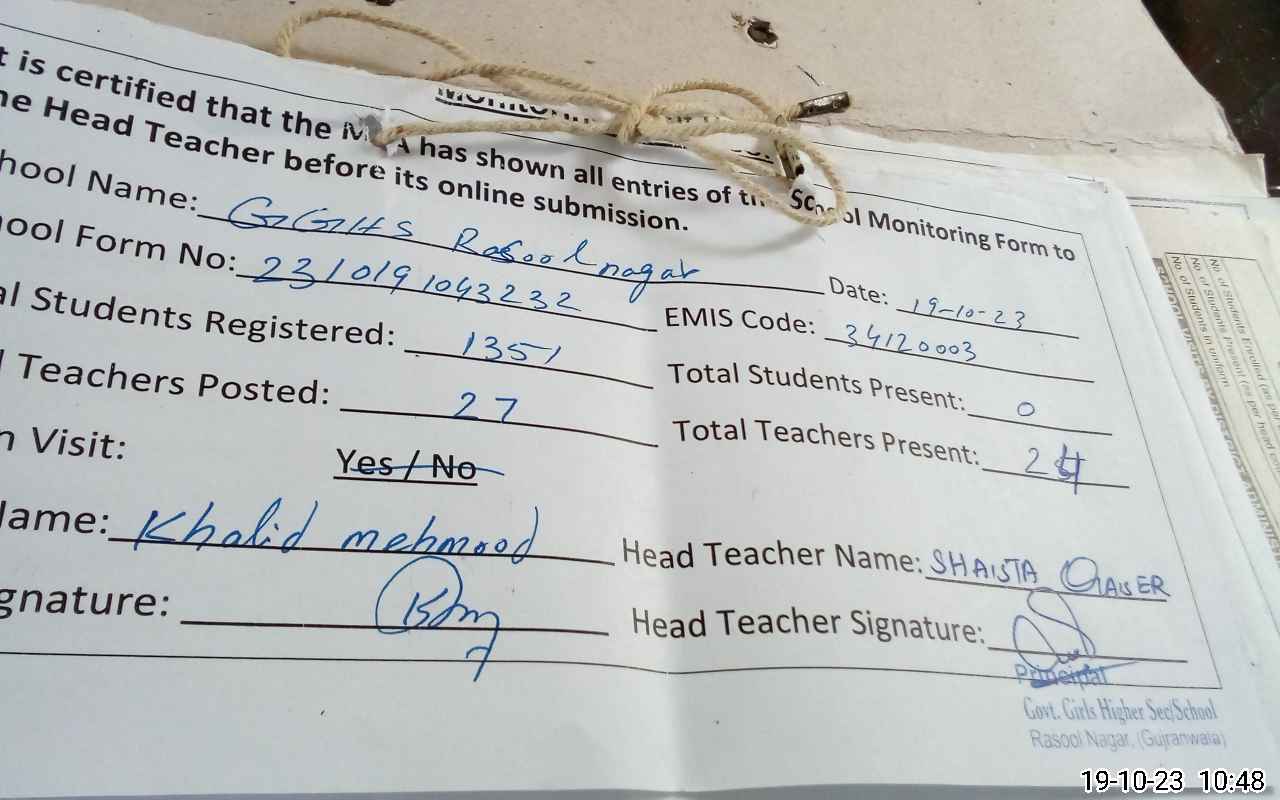 t is certified that the M A has shown all entries of the School Monitoring Form to
he Head Teacher before its online submission.
hool Name: GGHS Rasool nagar
Date: 19-10-23
ool Form No: 231019 1043232
EMIS Code: 34120003
al Students Registered: 1351
Total Students Present: 0
l Teachers Posted: 27
Total Teachers Present: 24
n Visit: Yes / No
Name: Khalid mehmood
Head Teacher Name: SHAISTA QAISER
gnature:
Head Teacher Signature:
Principal
Govt. Girls Higher Sec/School
Rasool Nagar, (Gujranwala)
No. of Students Enrolled (as per
No of Students Present (as per head
No of Students in uniform
19-10-23 10:48